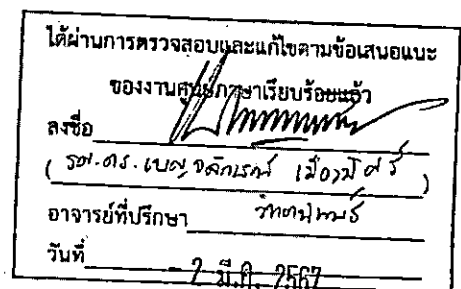 ได้ผ่านการตรวจสอบและแก้ไขตามข้อเสนอแนะ
ของงานศูนย์ภาษาเรียบร้อยแล้ว
ลงชื่อ
( รศ.ดร. เบญจลักษณ์ เมืองมีศรี )
อาจารย์ที่ปรึกษา วิทยานิพนธ์
วันที่ - 2 มี.ค. 2567